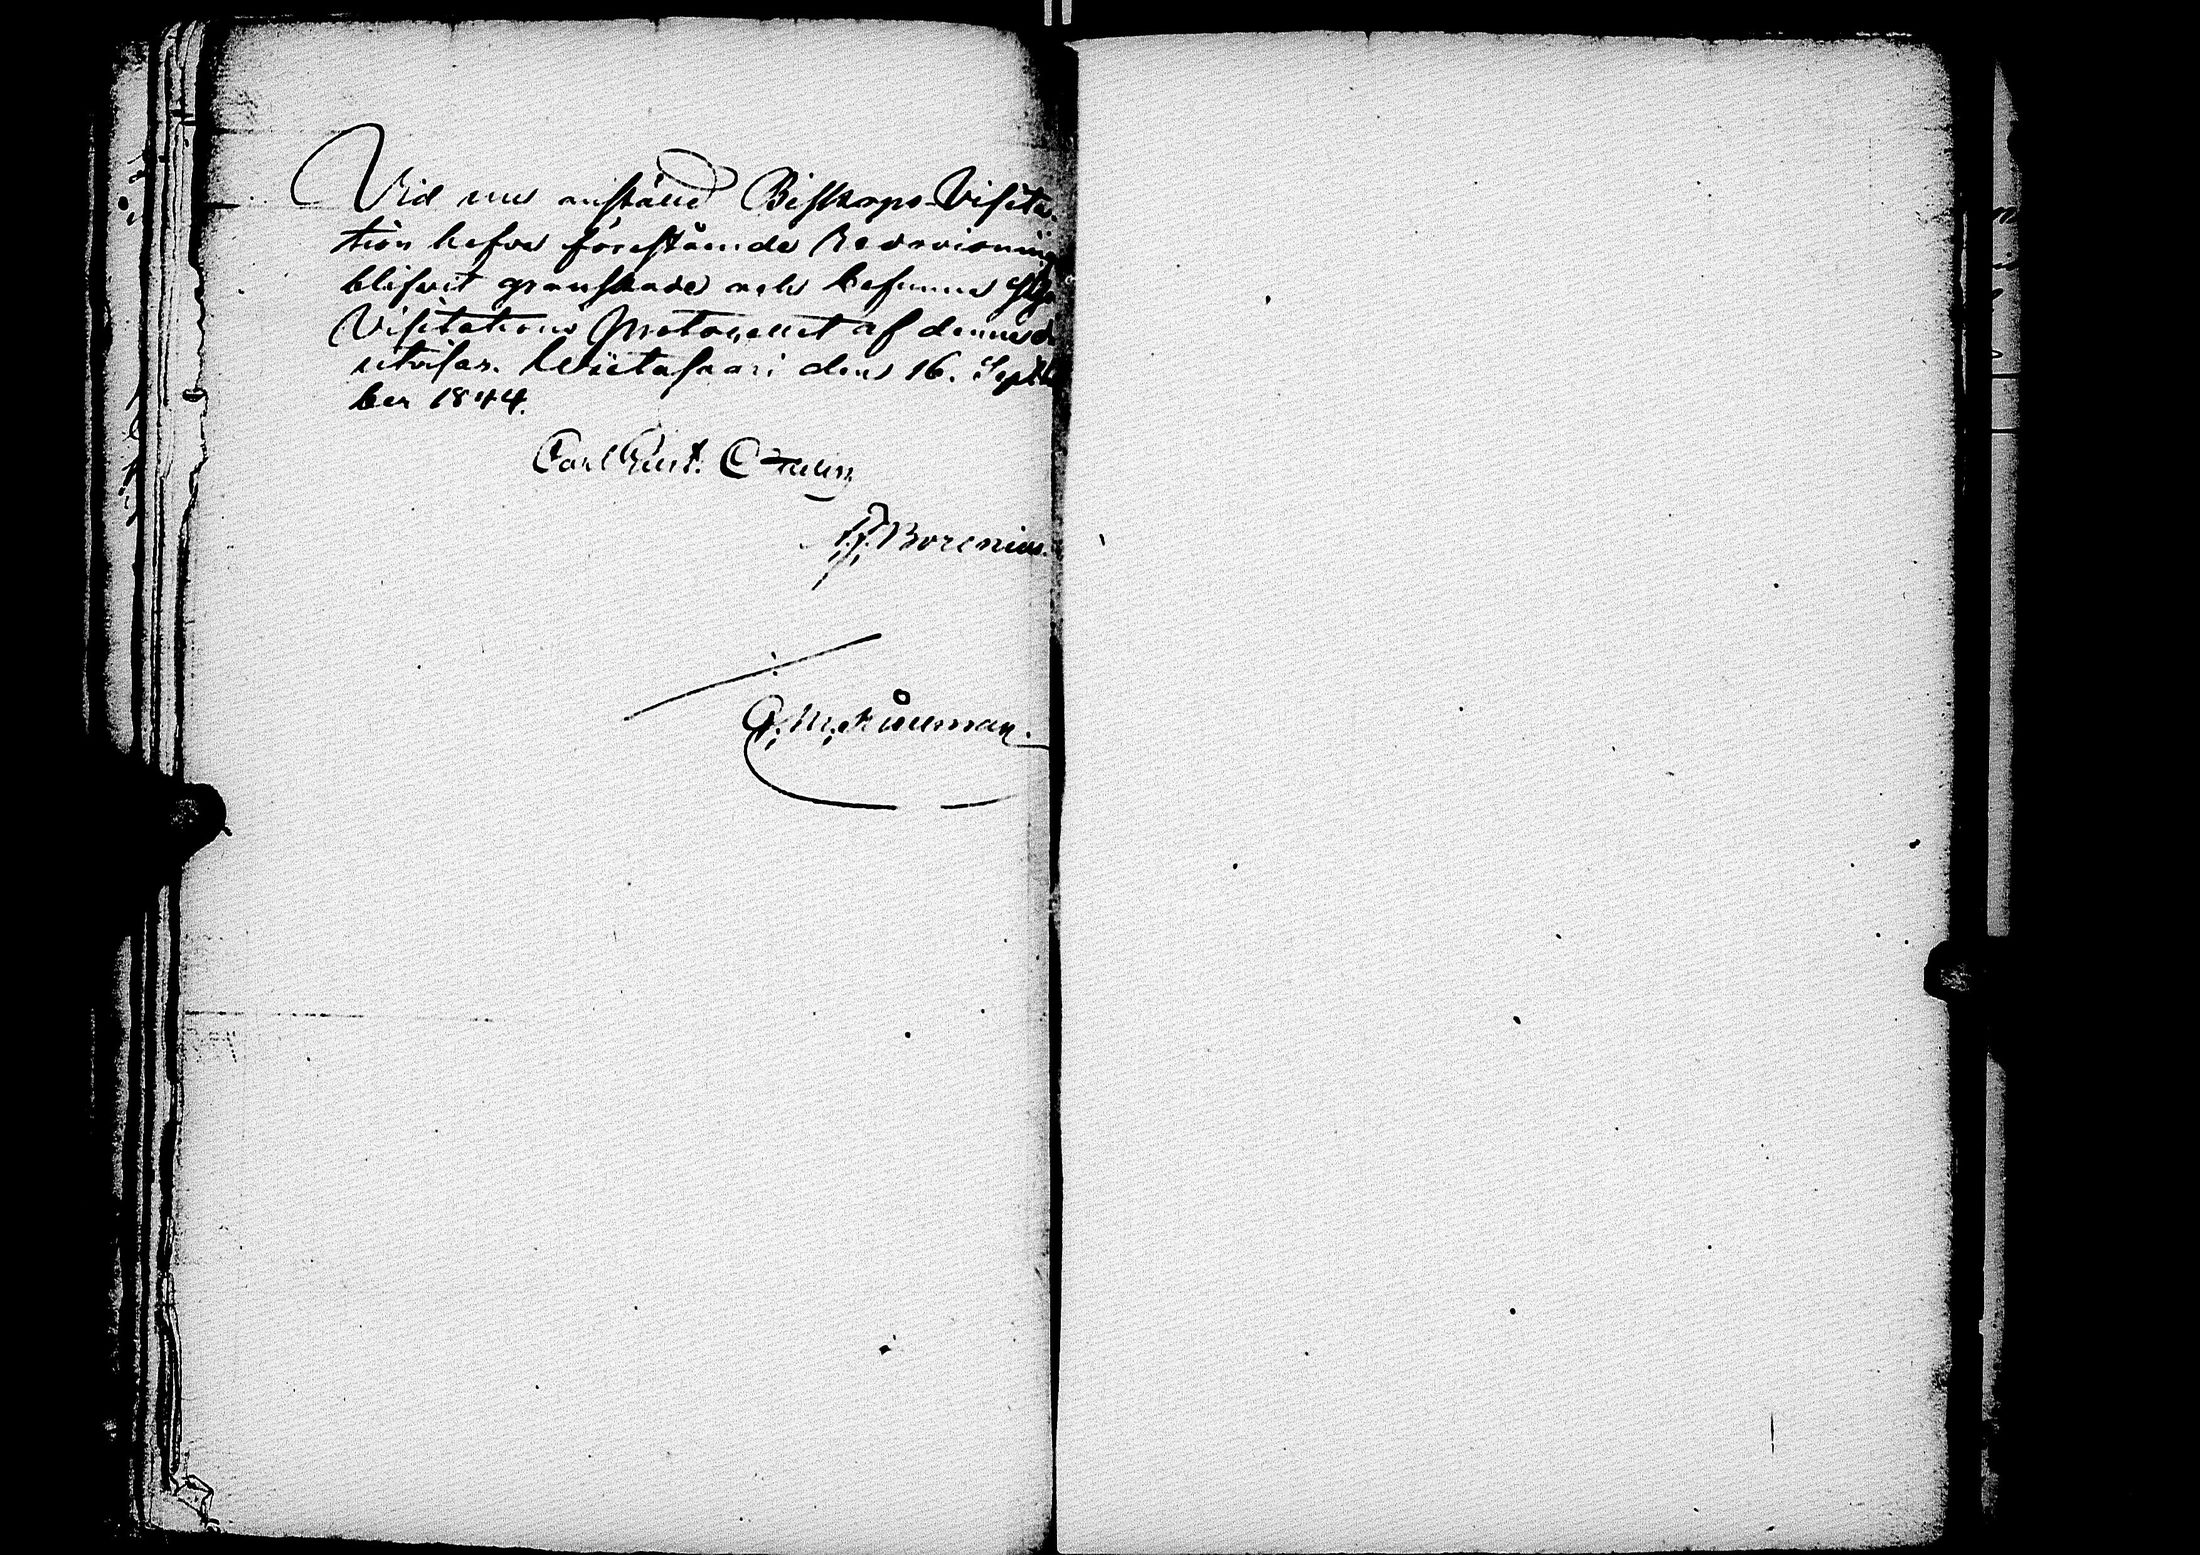 Vid nu anstäld Biskops-Visita-
tion hafva förestående Redovisning
blifvit granskade och befunna
Visitations Protocollet af denna d.
utvisar. Wiitasaari den 16. Septem
ber 1844.
Carl Gust. Ottelin
Borenius.
G. M. Nåuman.